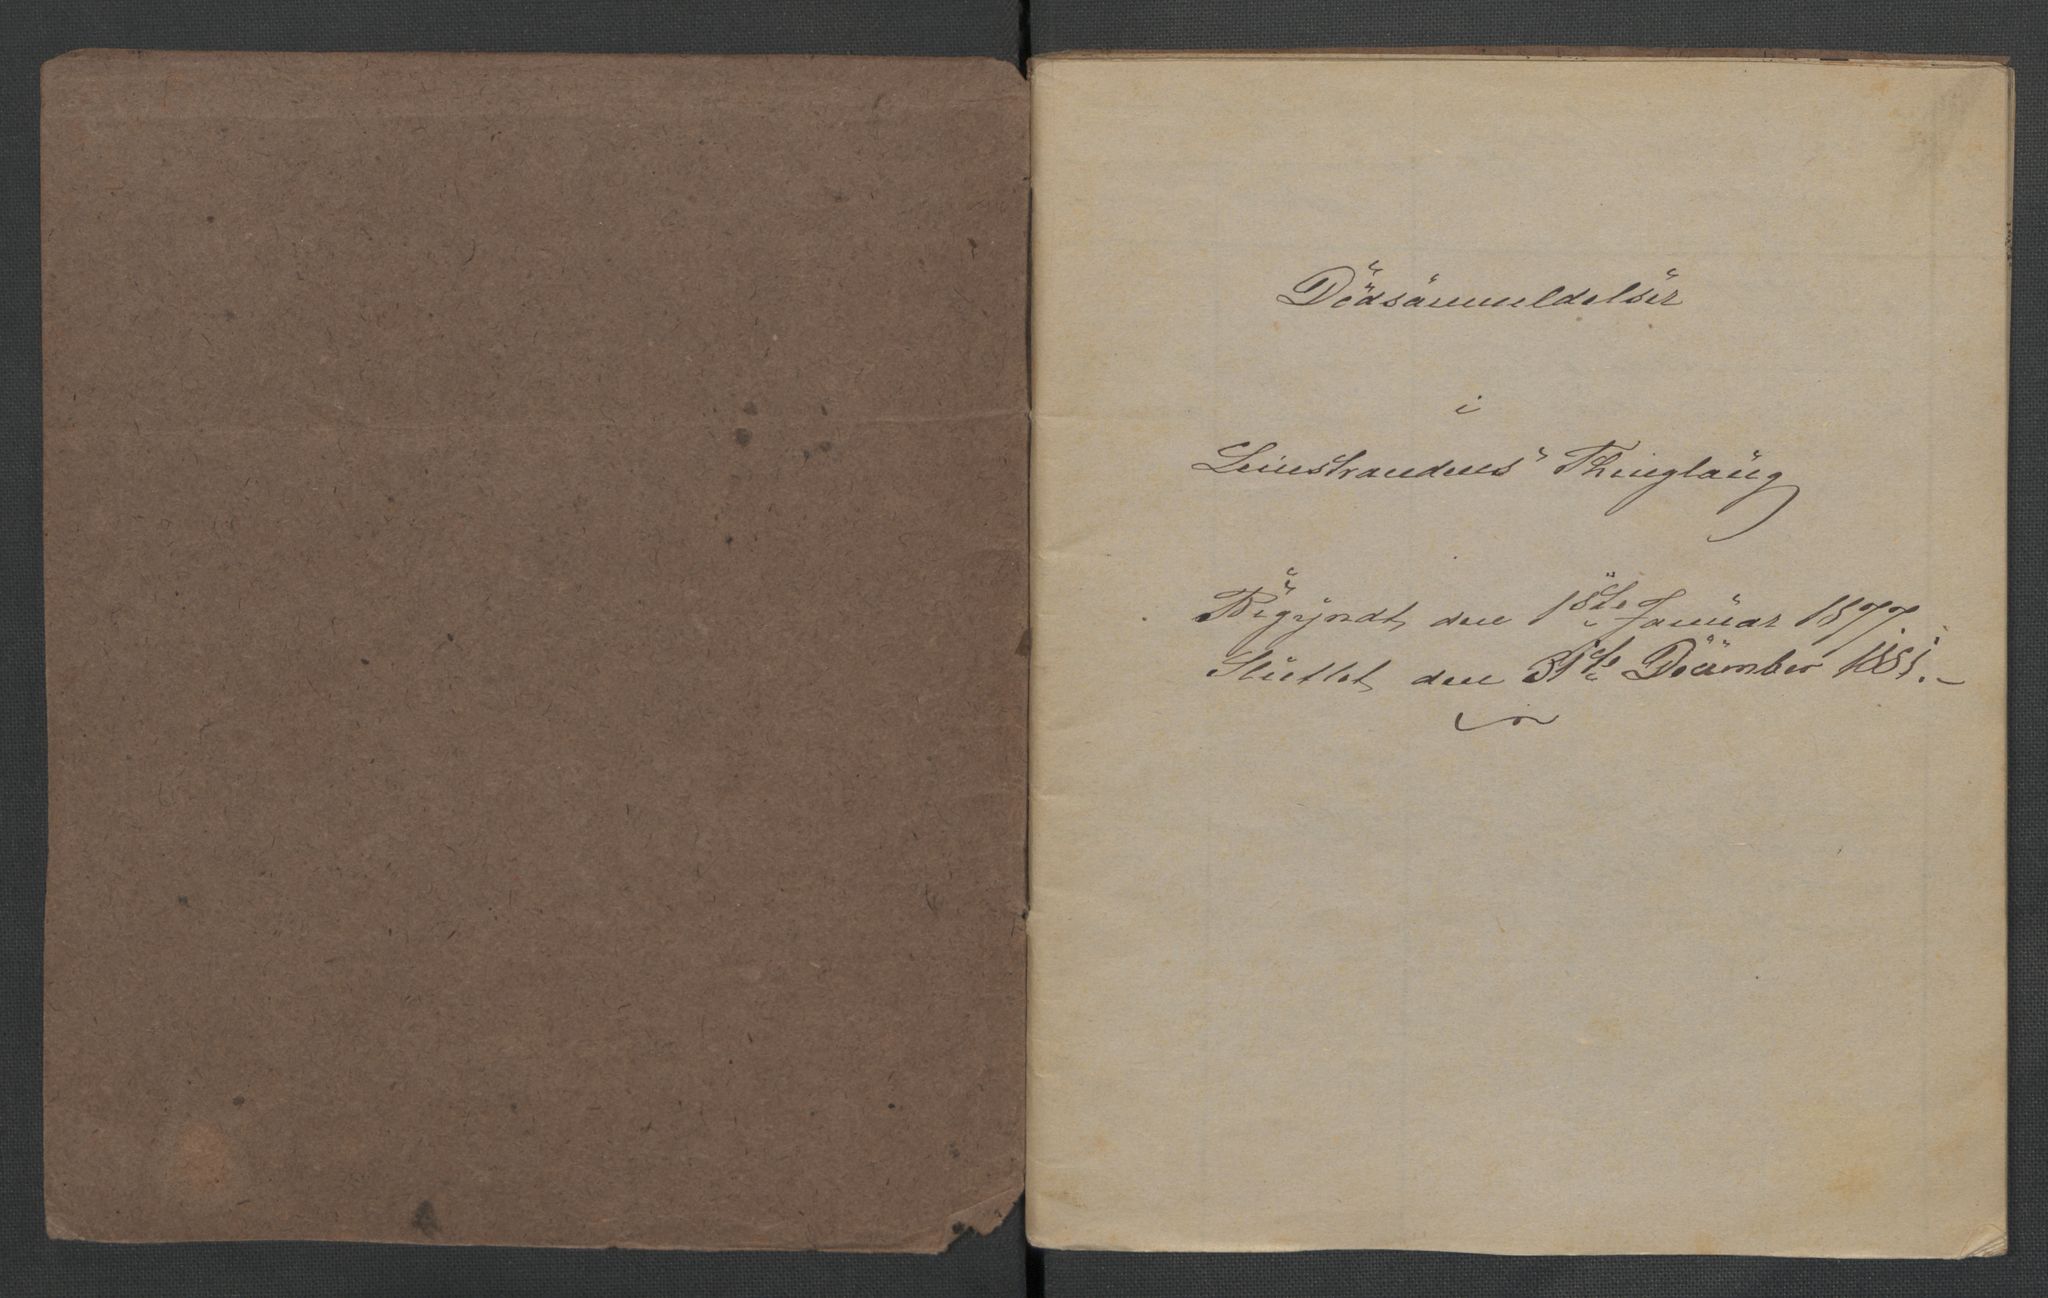 Dödsanmeldelser
i
Leinstrandens Thinglaug
Begyndt den 1ste Januar 1877.
Sluttet den 31te December 1881.-